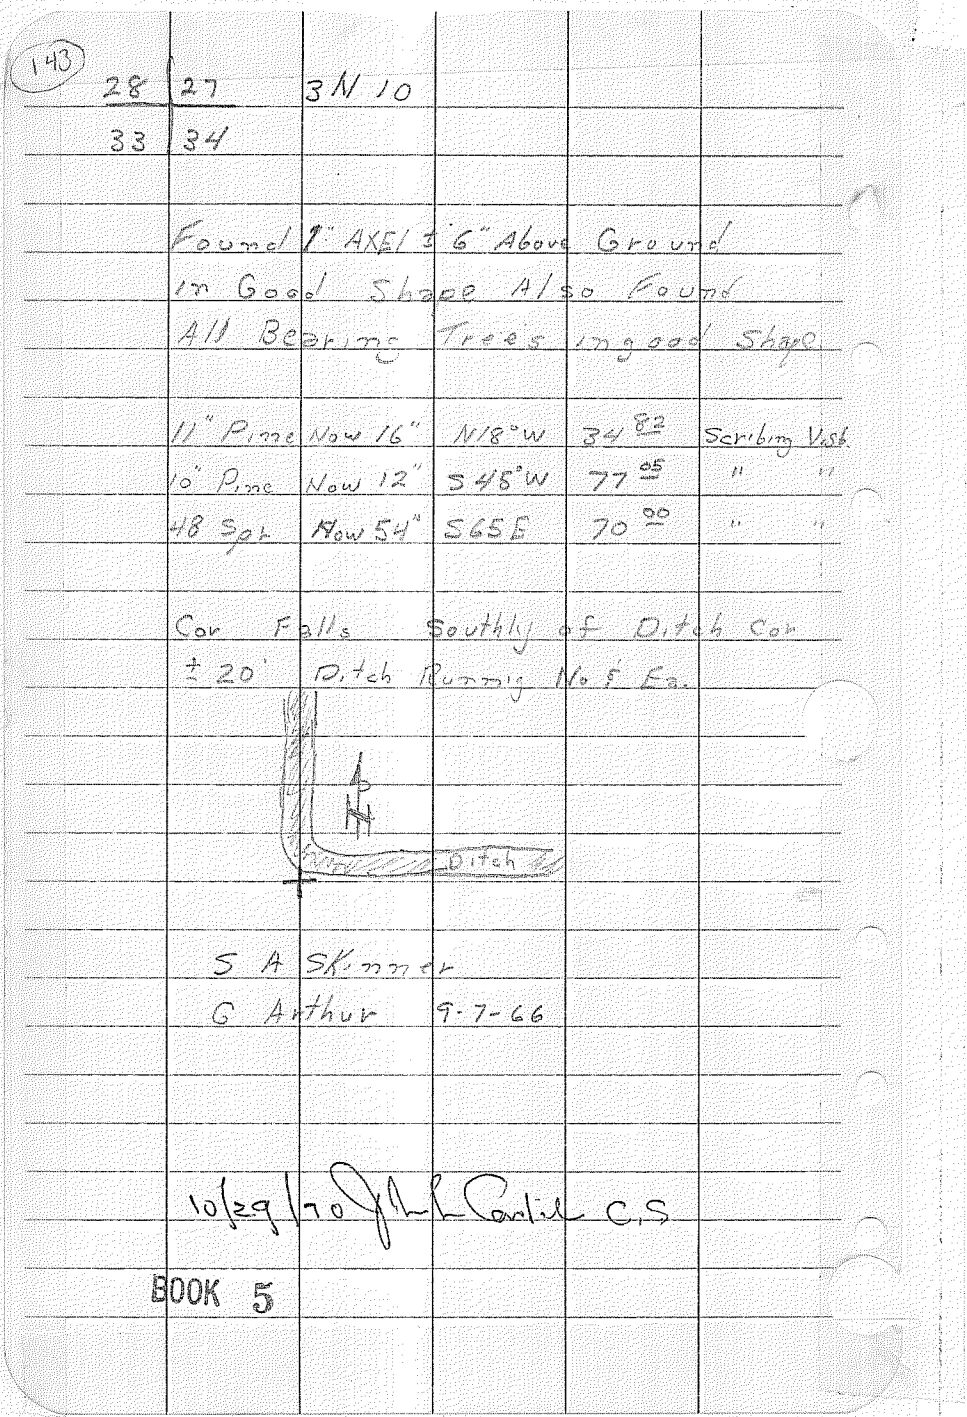 143
28 27 3N 10
33 34
Found 1" AXEl ± 6" Above Ground
in Good Shape Also Found
All Bearing Trees in good Shape
11" Pine Now 16" N18°W 34 82 Scribing Visb.
10" Pine Now 12" S45°W 77 05 " "
48 Spr Now 54" S65E 70 00 " "
Cor Falls Southly of Ditch Cor
± 20' Ditch Runnig No & Ea.
N
Ditch
S A Skinner
G Arthur 9-7-66
10/29/70 C.S.
BOOK 5